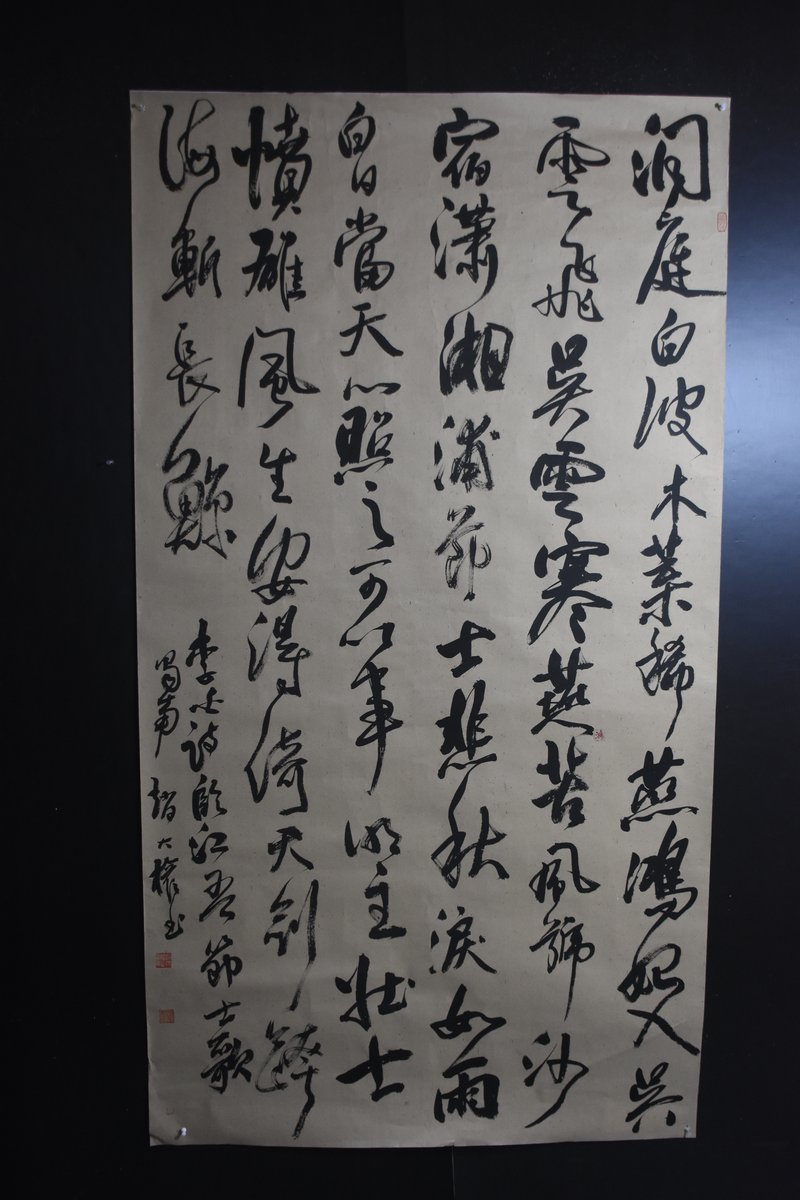 洞庭白波木葉稀燕鴻始入吳
雲飛吳雲寒燕苦風號沙
宿瀟湘浦節士悲秋淚如雨
白日當天心照之可以事明主壯士
憤雄風生安得倚天劍跨
海斬長鯨
李白詩臨江王節士歌
蜀南